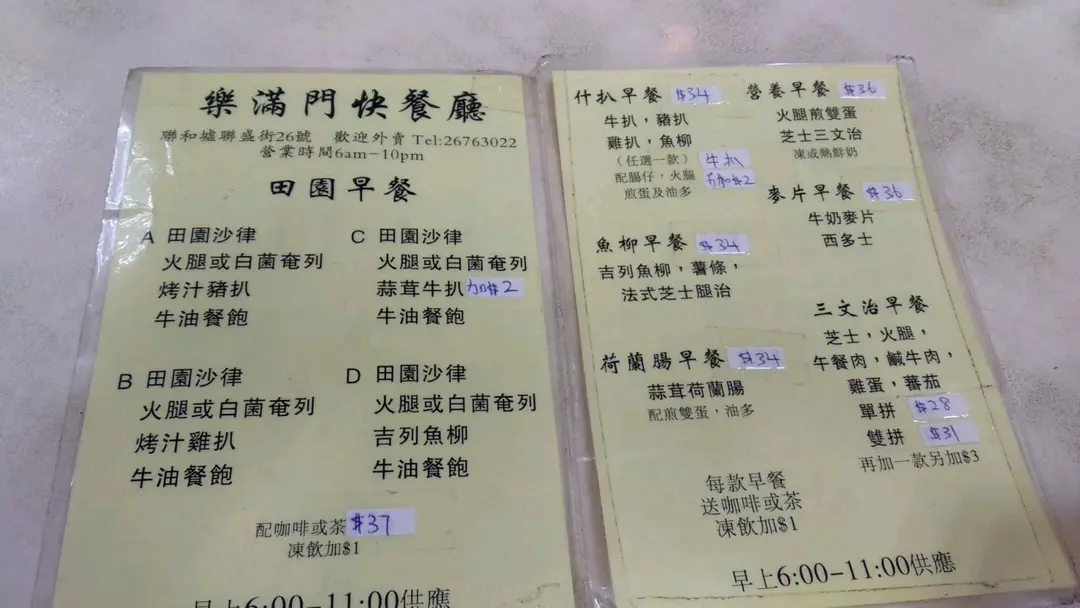 樂滿門快餐廳
聯和墟聯盛街26號 歡迎外賣 Tel:26763022
營業時間6am-10pm
田園早餐
A 田園沙律
火腿或白菌奄列
烤汁豬扒
牛油餐飽
C 田園沙律
火腿或白菌奄列
蒜茸牛扒 加$2
牛油餐飽
B 田園沙律
火腿或白菌奄列
烤汁雞扒
牛油餐飽
D 田園沙律
火腿或白菌奄列
吉列魚柳
牛油餐飽
配咖啡或茶 $37
凍飲加$1
早上6:00-11:00供應
什扒早餐 $34
牛扒,豬扒
雞扒,魚柳
(任選一款) 牛扒
配腸仔,火腿 另加$2
煎蛋及油多
魚柳早餐 $34
吉列魚柳,薯條,
法式芝士腿治
荷蘭腸早餐 $34
蒜茸荷蘭腸
配煎雙蛋,油多
營養早餐 $36
火腿煎雙蛋
芝士三文治
凍或熱鮮奶
麥片早餐 $36
牛奶麥片
西多士
三文治早餐
芝士,火腿,
午餐肉,鹹牛肉,
雞蛋,蕃茄
單拼 $28
雙拼 $31
再加一款另加$3
每款早餐
送咖啡或茶
凍飲加$1
早上6:00-11:00供應